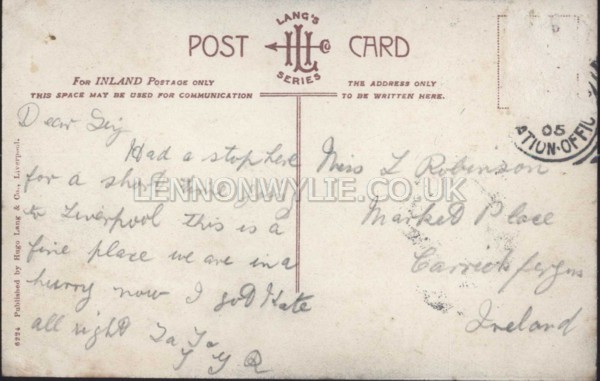 LANG'S
POST CARD
SERIES
FOR INLAND POSTAGE ONLY
THIS SPACE MAY BE USED FOR COMMUNICATION
THE ADDRESS ONLY
TO BE WRITTEN HERE.
Dear
Had a stop here
for a short time
to Liverpool this is a
fine place we are in a
hurry now I got Kate
all right Ta Ta
Miss L Robinson
Market Place
Carrickfergus
Ireland
05
ATION·OFFIC
LENNONWYLIE.CO.UK
6274 Published by Hugo Lang & Co., Liverpool.